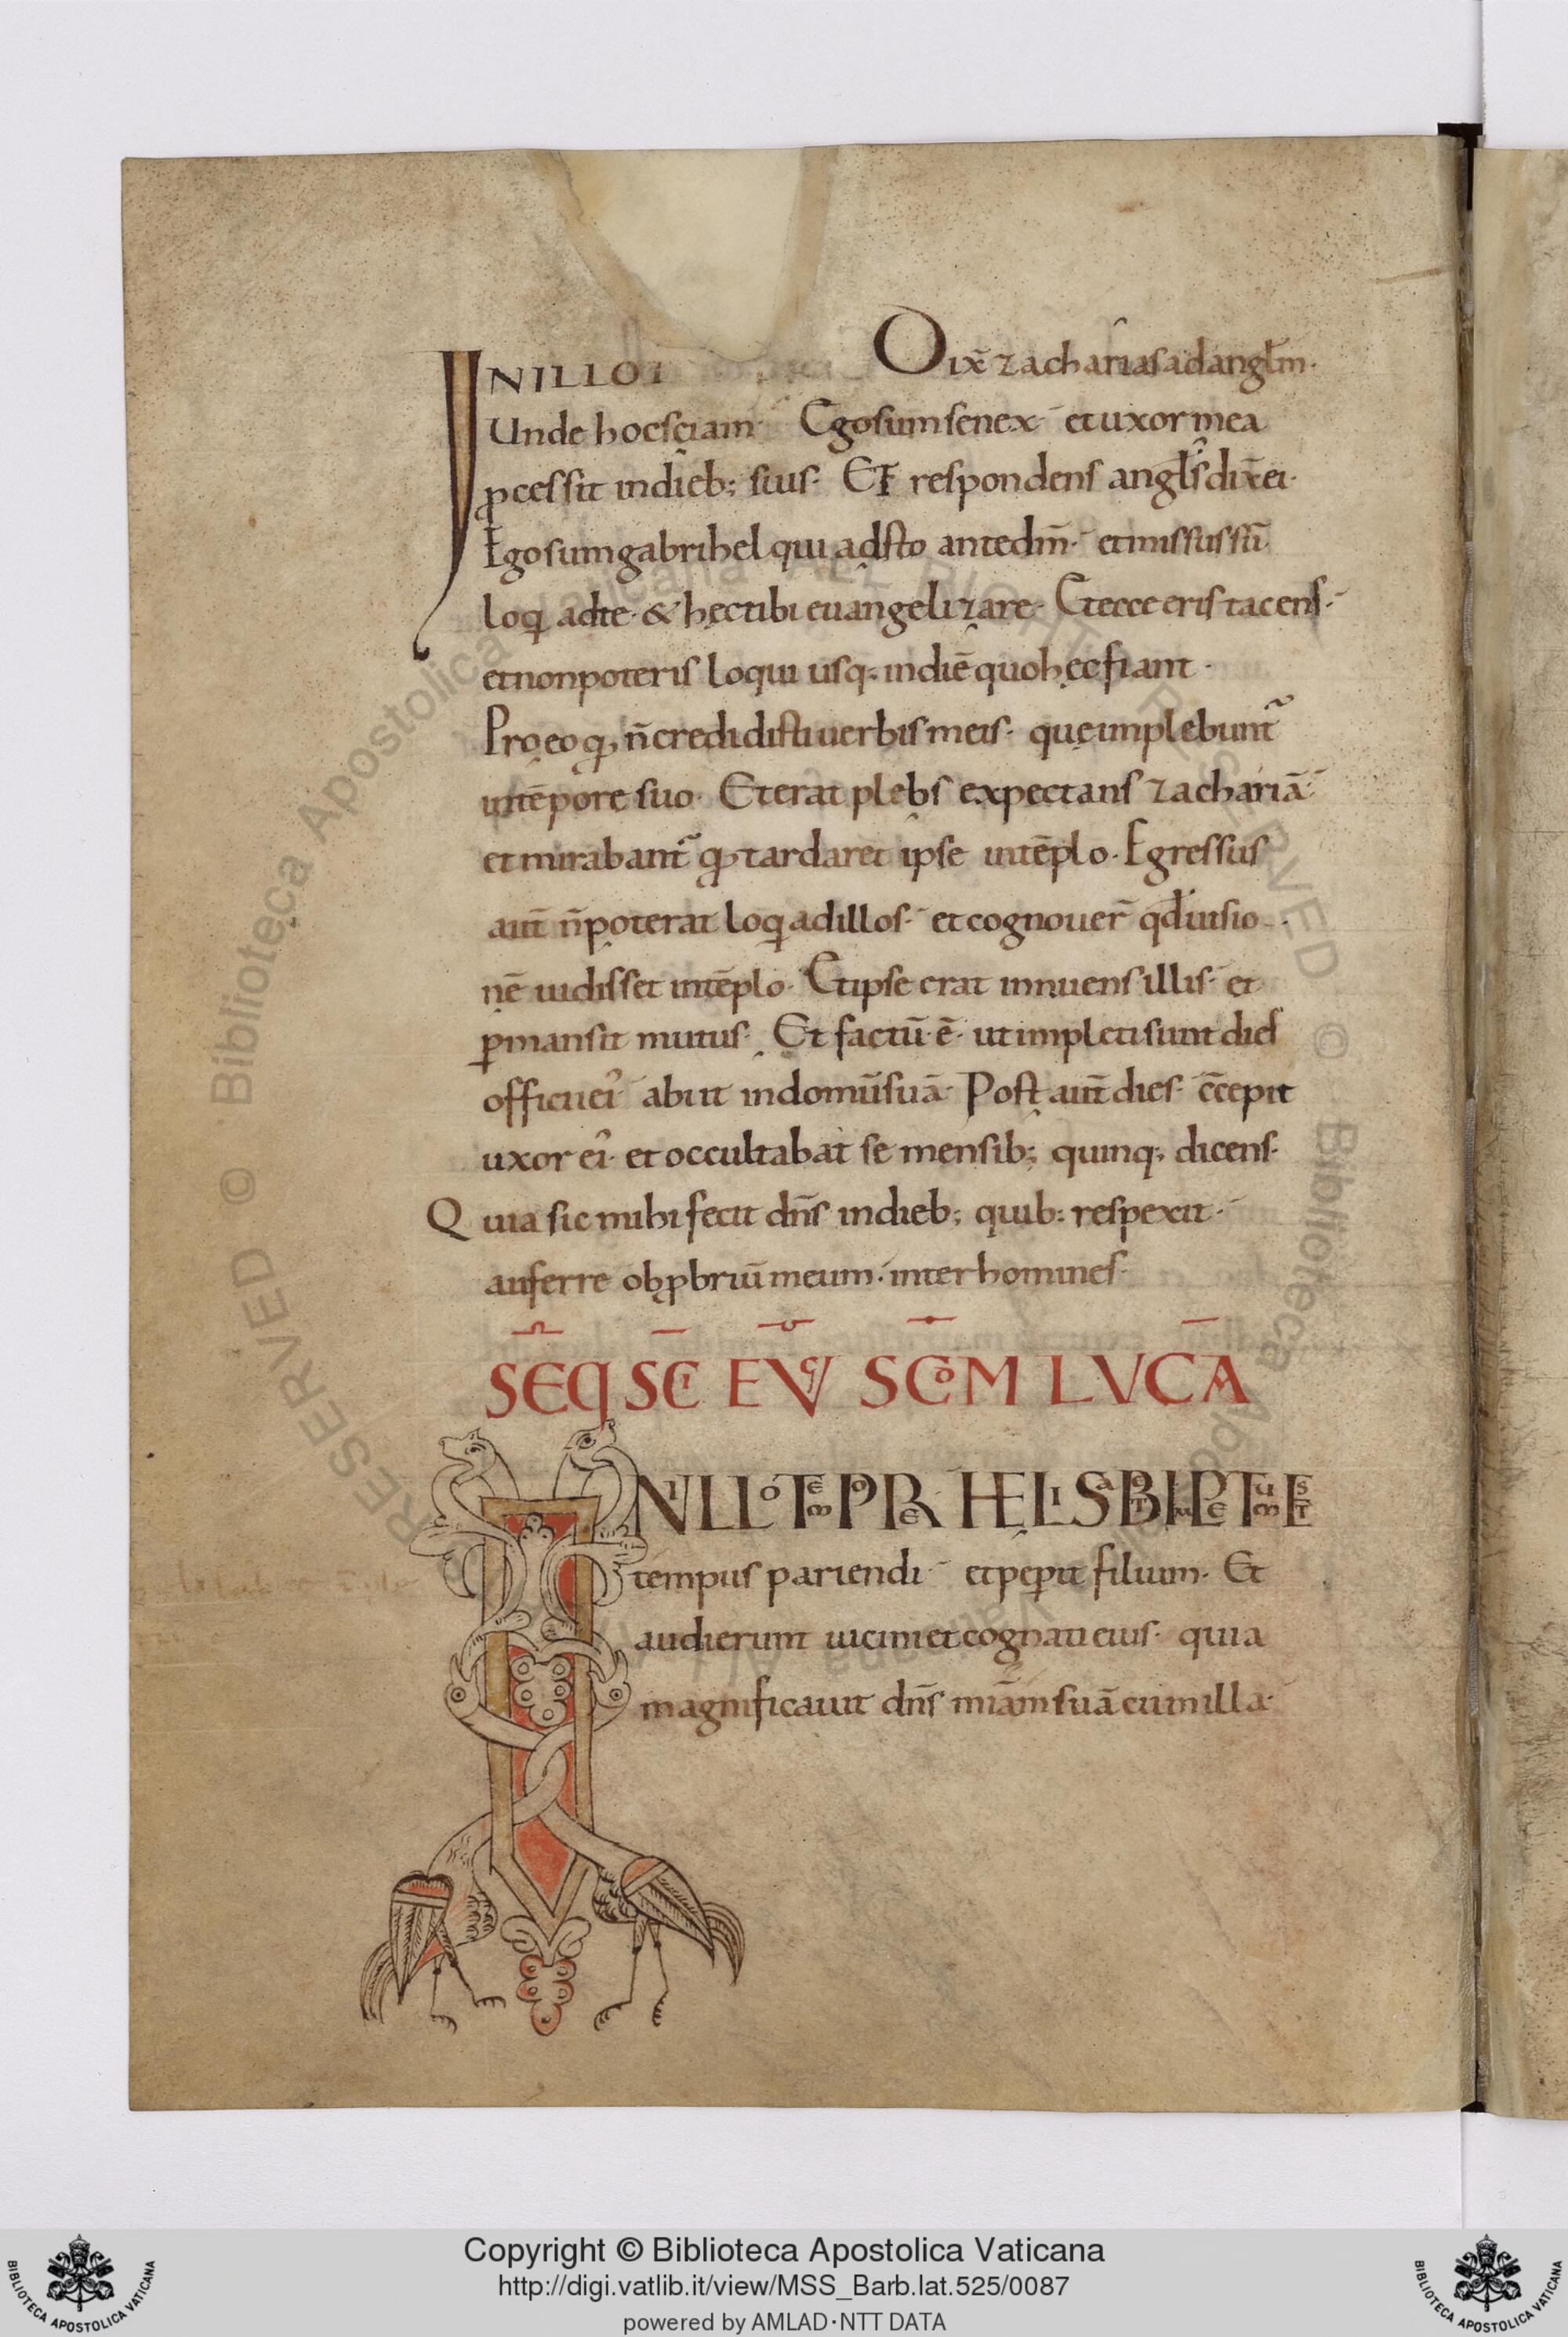 INILLOT Dix̄ zacharias ad angl̄m·
Unde hoc sciam· Ego sum senex· et uxor mea
ꝓcessit in dieb; suis· ET respondens angl̄s dix̄ ei·
Ego sum gabrihel qui adsto ante dm̄· et missus sū
loqͥ ad te· & hęc tibi euangelizare· Et ecce eris tacens·
et non poteris loqui usq; in diē quo hęc fiant·
Pro eo qđ n̄ credidisti uerbis meis· quę implebunt᷑
in tēpore suo· Et erat plebs expectans zachariā·
et mirabant᷑ qđ tardaret ipse in tēplo· Egressus
aut̄ n̄ poterat loqͥ ad illos· et cognouer̄ qđ uisio
nē uidisset in tēplo· Et ipse erat innuens illis· et
ꝑmansit mutus· Et factū ē· ut impleti sunt dies
officii ei᾽ abiit in domū suā· Post aut̄ dies c̄cepit
uxor ei᾽ et occultabat se mensib; quinq; dicens·
Quia sic mihi fecit dn̄s in dieb; quib; respexit·
auferre obꝓbriū meum· inter homines·
SEQ SCI EVG SCDM LVCA
IN ILLO TEMPORE HELISABETH IMPLETUM EST
tempus pariendi· et peꝑit filium· Et
audierunt uicini et cognati eius· quia
magnificauit dn̄s miām suā cum illa·
Copyright © Biblioteca Apostolica Vaticana
http://digi.vatlib.it/view/MSS_Barb.lat.525/0087
powered by AMLAD·NTT DATA
BIBLIOTECA APOSTOLICA VATICANA
BIBLIOTECA APOSTOLICA VATICANA